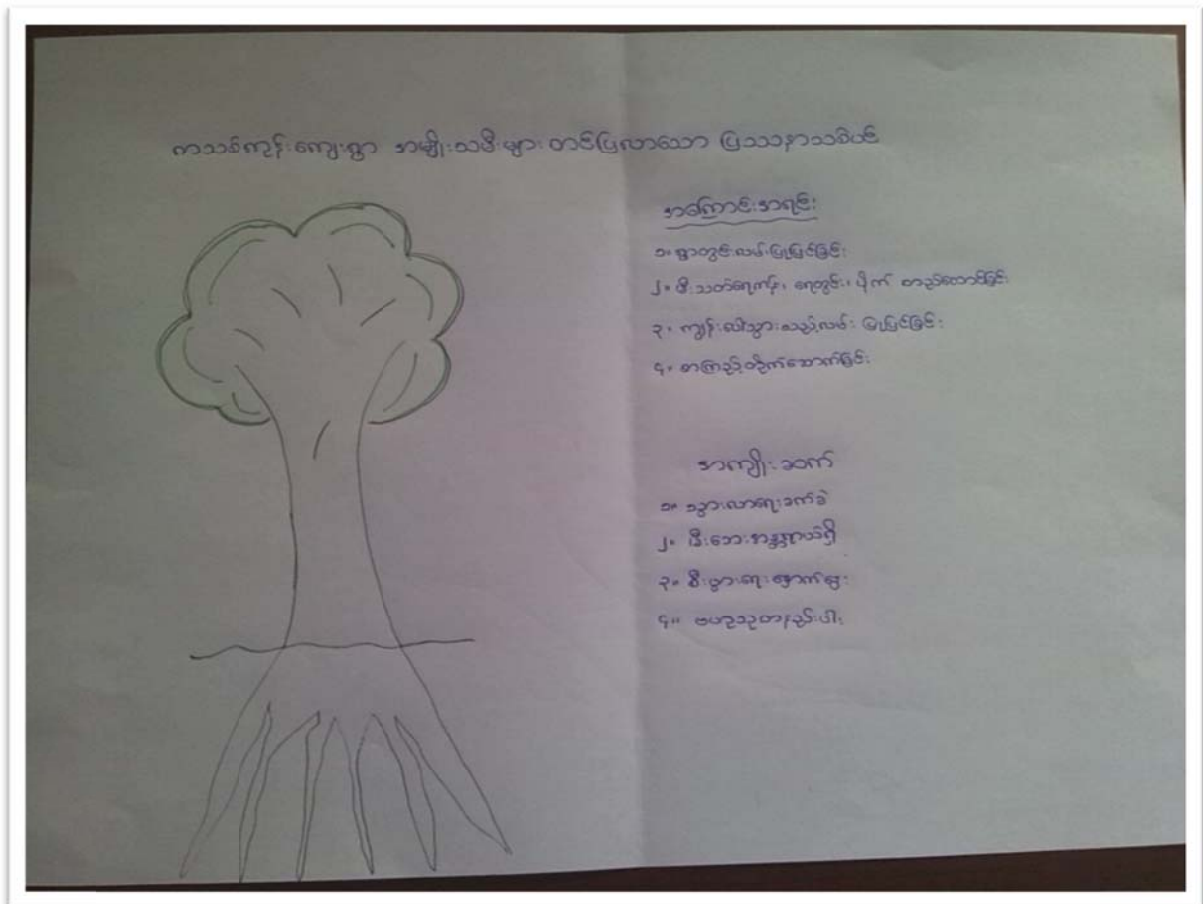 ကသစ်ကုန်းကျေးရွာ အမျိုးသမီးများ တင်ပြလာသော ပြဿနာသစ်ပင်
အကြောင်းအရင်း
၁။ ရွာတွင်းလမ်းပြုပြင်ခြင်း
၂။ မီးသတ်ရေကန်၊ ရေတွင်း၊ ပိုက် တည်ထောင်ခြင်း
၃။ ကျွန်းလယ်သွားသည့်လမ်း ပြုပြင်ခြင်း
၄။ စာကြည့်တိုက်ဆောက်ခြင်း
အကျိုးဆက်
၁။ သွားလာရေးခက်ခဲ
၂။ မီးဘေးအန္တရာယ်ရှိ
၃။ စီးပွားရေးနှောက်နှေး
၄။ ဗဟုသုတနည်းပါး